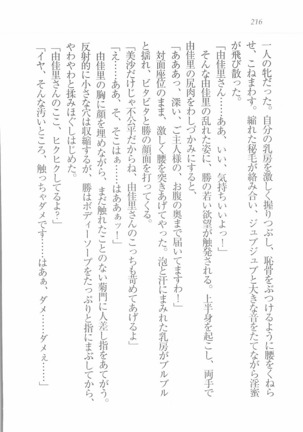 216
一人の牝だった。自分の乳房を激しく握りつぶし、恥骨をぶつけるように腰をくねら
せ、こねまわす。縮れた秘毛が絡み合い、ジュブジュブと大きな音をたてながら淫蜜
が飛び散った。
「由佳里さん……ああ、いい、気持ちいいよっ！」
そんな由佳里の乱れた姿に、勝の若い欲望が触発される。上半身を起こし、両手で
由佳里の尻肉をわしづかみにすると、
「あああっ、深い、ご主人様の、お腹の奥まで届いてますわっ！」
対面座位のまま、激しく腰を突きあげてやった。泡と汗にまみれた乳房がブルブル
と揺れ、ビタビタと勝の顔面を打ってくる。
「美沙だけじゃ不公平だからね、由佳里さんのこっちも苛めてあげるよ」
「え……ああ、そ、そこはぁ……はああぁッ！」
由佳里の胸に顔を埋めながら、まだ触れたことのない菊門に人差し指をあてがう。
反射的に小さな穴は収縮するが、勝はボディーソープをたっぷりと指にまぶしてから、
やわやわと揉みほぐしはじめた。
「由佳里さんのここ、ヒクヒクしてるよ？」
「イヤ、そんな汚いところ、触っちゃダメです……はあぁ、ダメ……ダメぇ……」